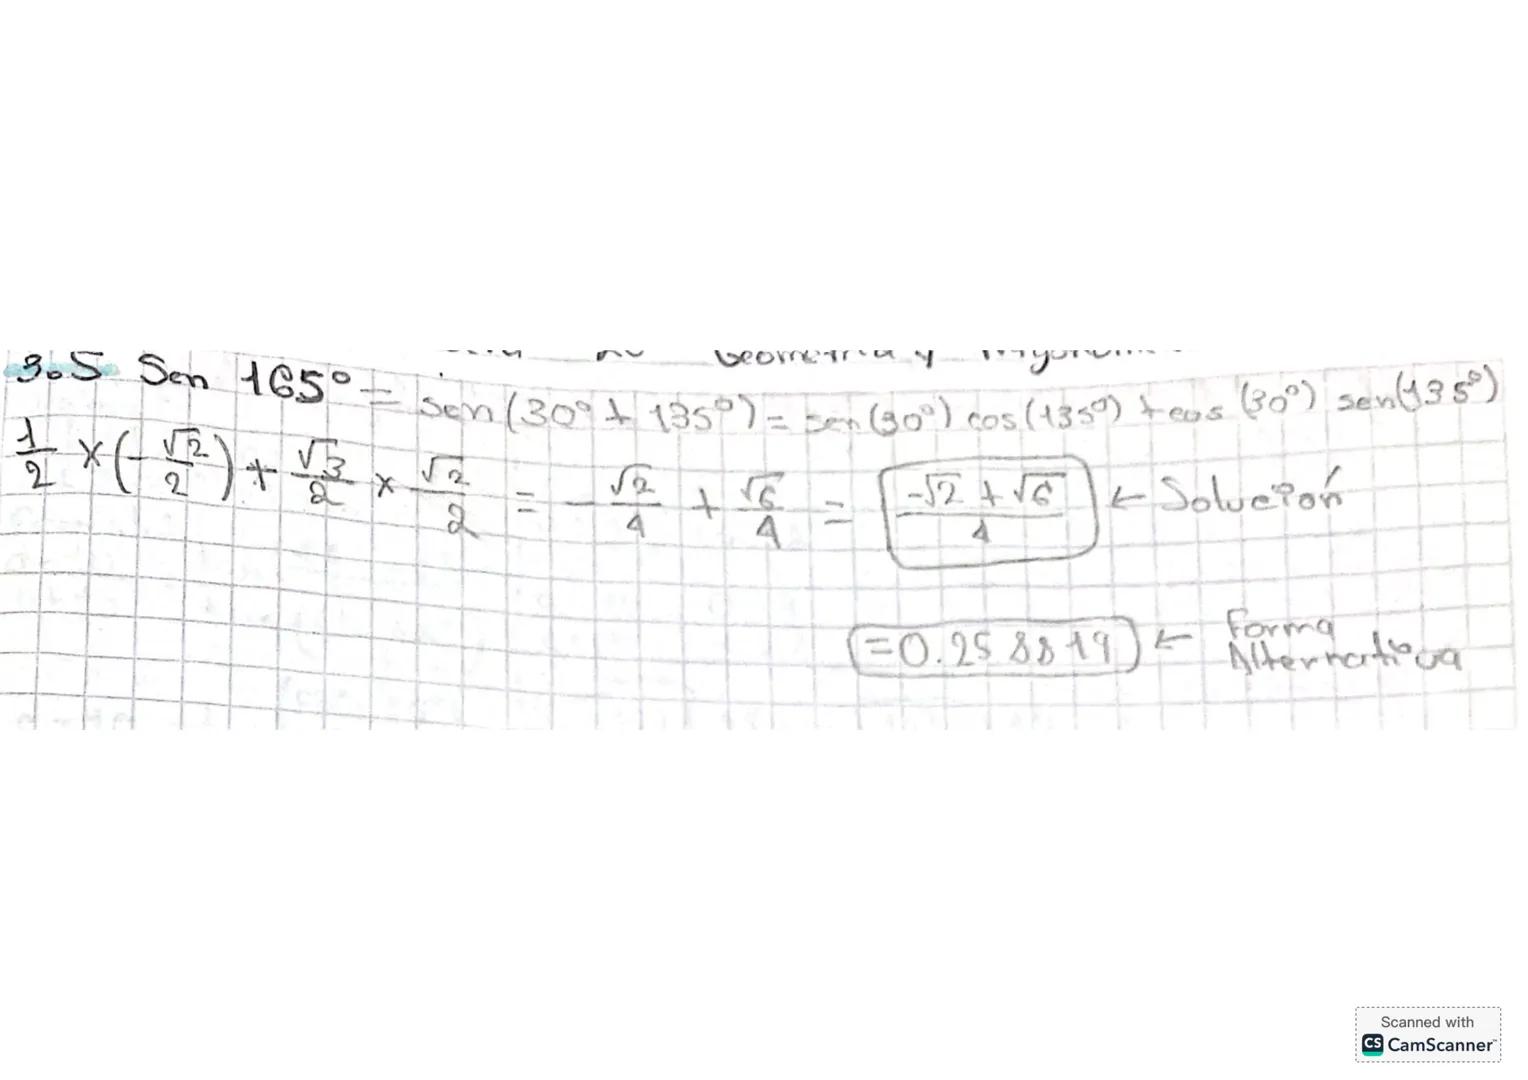 Geometría y
3.5 Sen 165° = sen (30° + 135°) = sen (30°) cos (135°) + cos (30°) sen (135°)
1/2 × (-√2/2) + √3/2 × √2/2 = -√2/4 + √6/4 = (-√2 + √6)/4 ← Solución
=0.258819 ← Forma
Alternativa
Scanned with
CS CamScanner